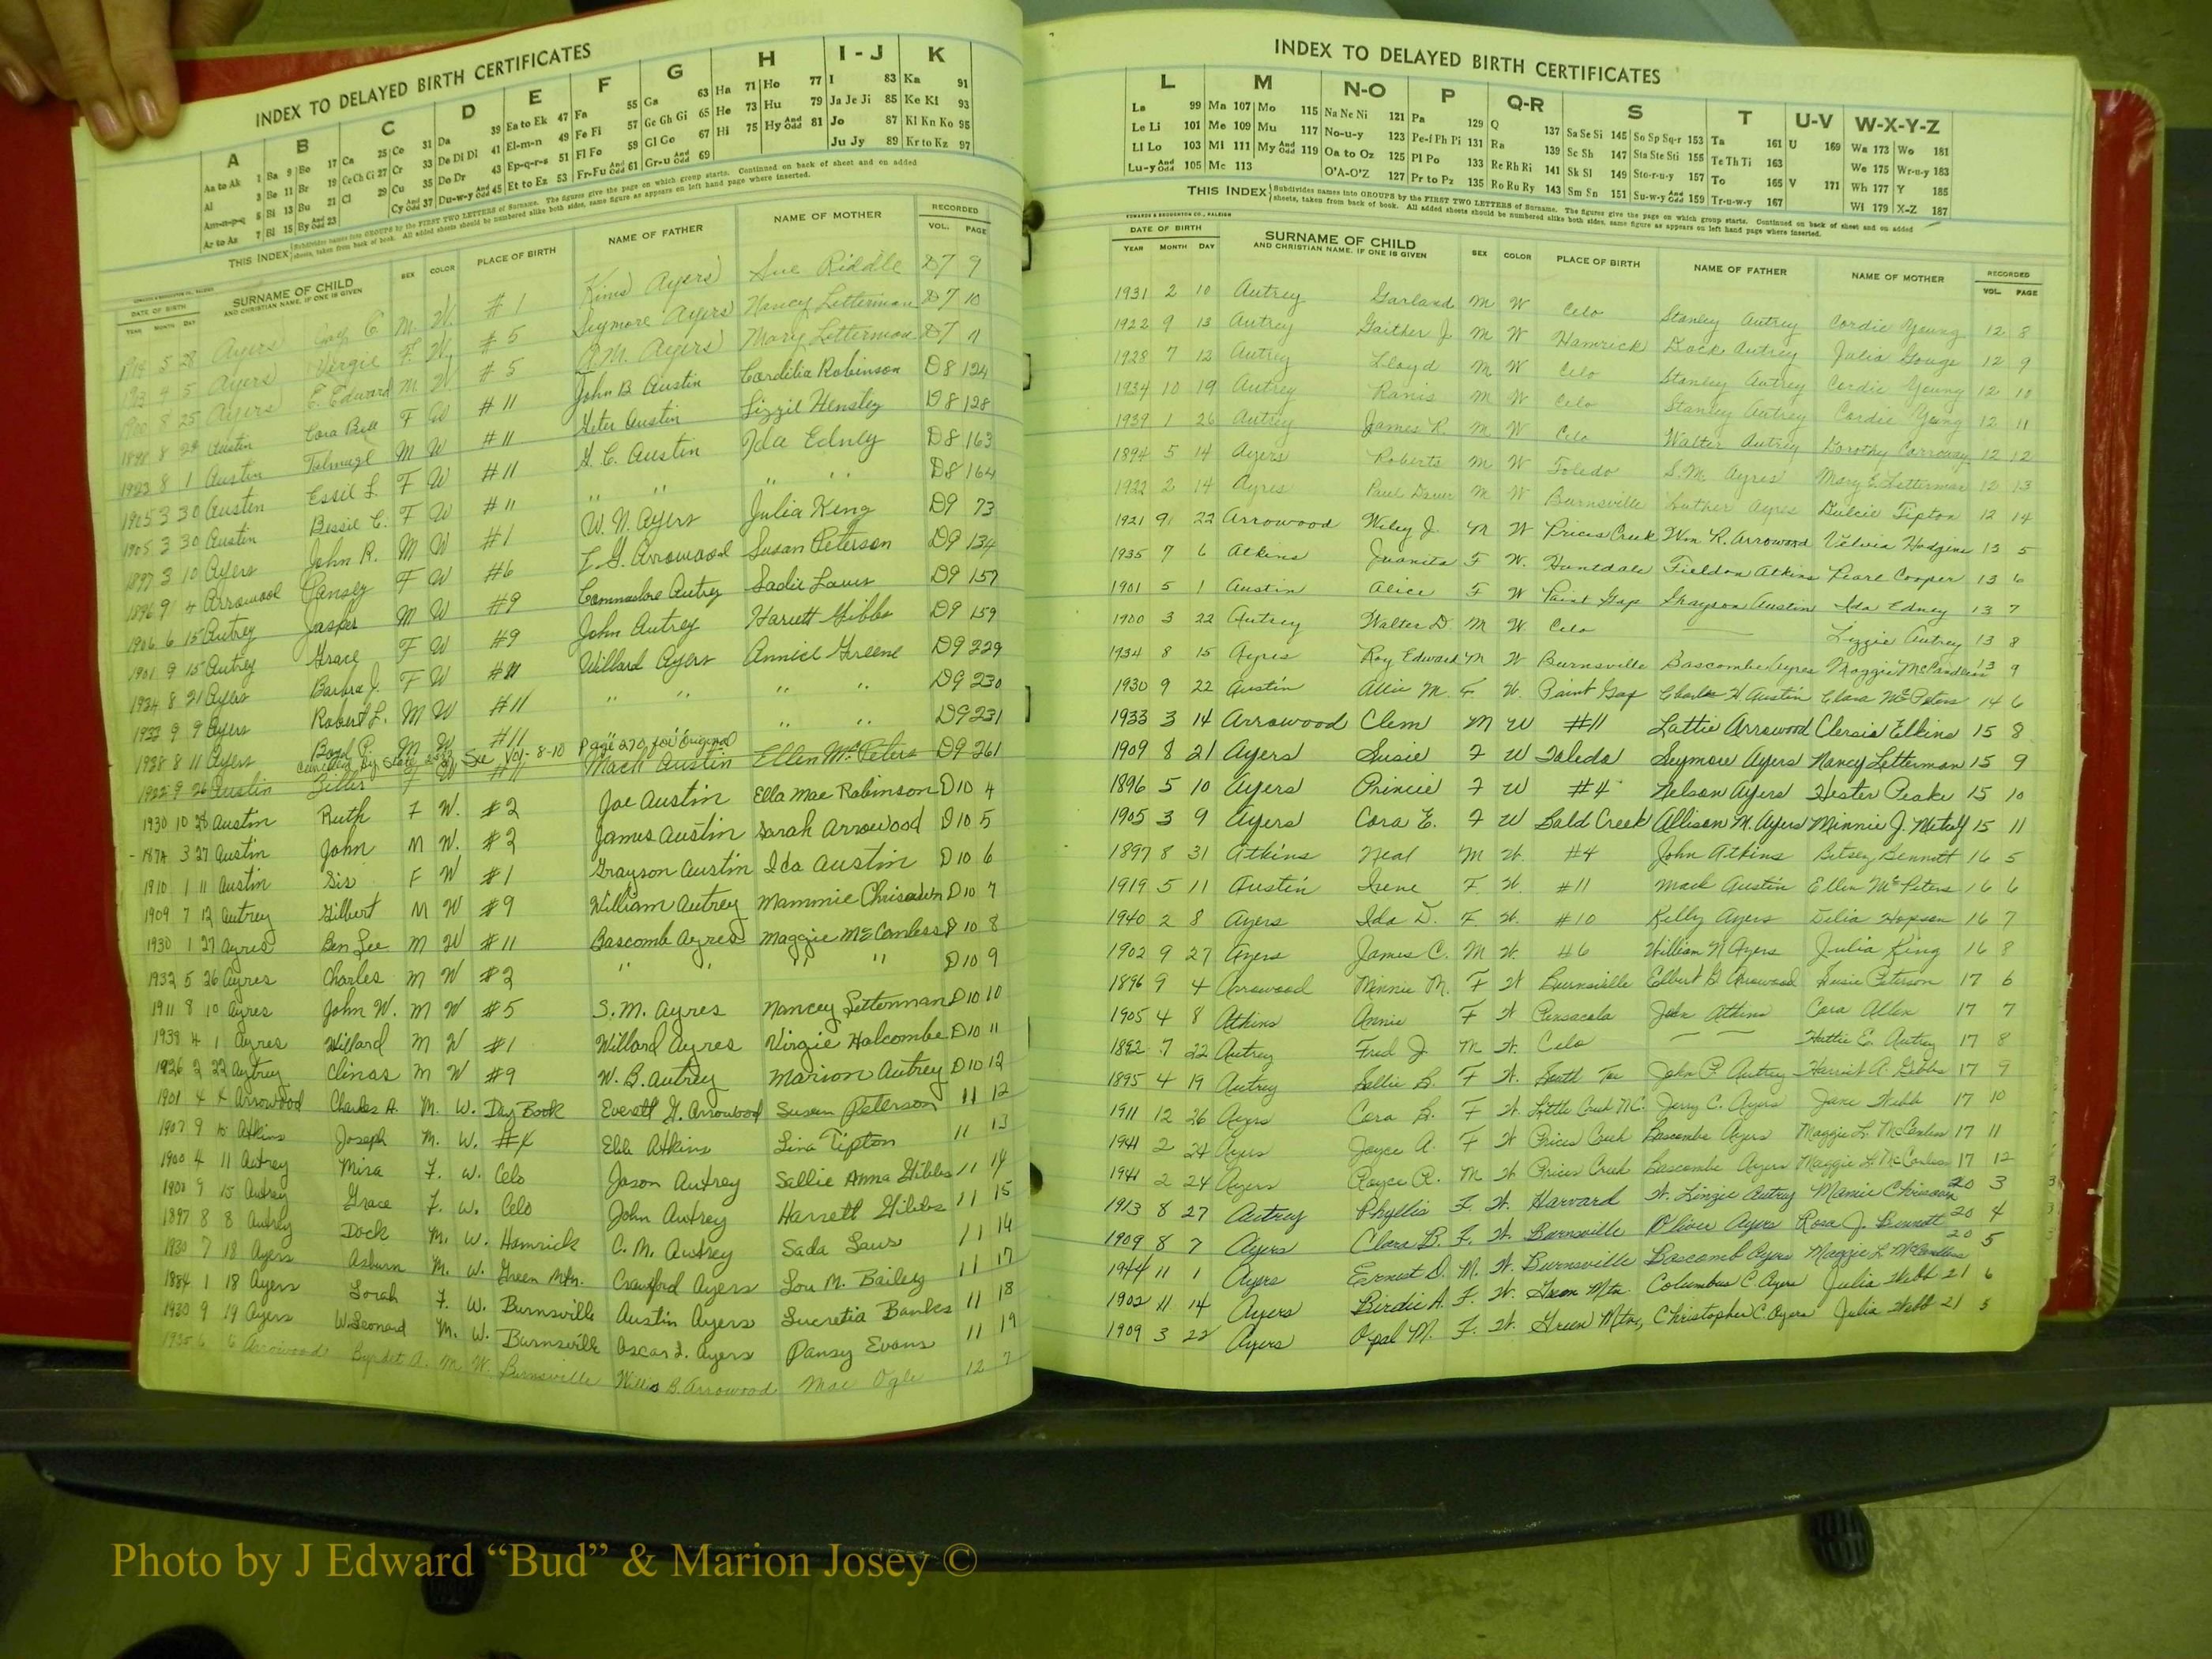 INDEX TO DELAYED BIRTH CERTIFICATES
A B C D E F G H I - J K
Aa to Ak 1 Ba 9 Be 17 Ca 25 Ce 31 Da 39 Ea to Ek 47 Fa 55 Ga 63 Ha 71 Ho 77 I 83 Ka 91
Al 3 Be 11 Br 19 Ce Ch Ci 27 Cr 33 De Di Dl 41 El-m-n 49 Fe Fi 57 Ge Gh Gi 65 He 73 Hu 79 Ja Je Ji 85 Ke Kl 93
Am-n-p-q 5 Bi 13 Bu 21 Cl 29 Cu 35 Do Dr 43 Ep-q-r-s 51 Fl Fo 59 Gl Go 67 Hi 75 Hy And Odd 81 Jo 87 Kl Kn Ko 95
Ar to Az 7 Bl 15 By And Odd 23 Cy And Odd 37 Du-w-y And Odd 45 Et to Ez 53 Fr-Fu And Odd 61 Gr-u And Odd 69 Ju Jy 89 Kr to Kz 97
THIS INDEX Subdivides names into GROUPS by the FIRST TWO LETTERS of Surname. The figures give the page on which group starts. Continued on back of sheet and on added
sheets, taken from back of book. All added sheets should be numbered alike both sides, same figure as appears on left hand page where inserted.
DATE OF BIRTH SURNAME OF CHILD SEX COLOR PLACE OF BIRTH NAME OF FATHER NAME OF MOTHER RECORDED
YEAR MONTH DAY AND CHRISTIAN NAME, IF ONE IS GIVEN VOL. PAGE
5 28 Ayers M. W. #1 Ayers Sue Riddle D7 9
Ayers Virgie F. W. #5 Seymore Ayers Nancy Letterman D7 10
8 25 Ayers E. Edward M. W #5 Ayers Mary Letterman D7 11
1898 8 29 Austin Cora Bell F W #11 John B Austin Cordilia Robinson D8 124
1923 8 1 Austin Talmage M W #11 Geter Austin Lizzie Hensley D8 128
1905 3 30 Austin Essie L. F W #11 G. C. Austin Ida Edney D8 163
1905 3 30 Austin Bessie C. F W #11 " " " " D8 164
1897 3 10 Ayers John R. M W #1 W. N. Ayers Julia King D9 73
1896 9 4 Arrowood Pansey F W #6 E. G. Arrowood Susan Peterson D9 134
1906 6 15 Autrey Jasper M W #9 Commadore Autrey Sadie Laws D9 157
1901 9 15 Autrey Grace F W #9 John Autrey Harrett Gibbs D9 159
1924 8 21 Ayers Barbra J. F W #11 Willard Ayers Annice Greene D9 229
9 9 Ayers Robert L. M W #11 " " " " D9 230
1928 8 11 Ayers Boyd P. M W #11 " " " " D9 231
Cancelled by State See Vol. 8-10 Page 270 for Original
1922 9 26 Austin F W #11 Mack Austin Ellen McPeters D9 261
1930 10 28 Austin Ruth F W. #2 Joe Austin Ella Mae Robinson D10 4
- 1874 3 27 Austin John M W. #2 James Austin Sarah Arrowood D10 5
1910 1 11 Austin Sis F W #1 Grayson Austin Ida Austin D10 6
1909 7 12 Autrey Gilbert M W #9 William Autrey Mammie Chrisawn D10 7
1930 1 27 Ayres Ben Lee M W #11 Bascomb Ayres Maggie McCanless D10 8
1932 5 26 Ayres Charles M W #2 " " " " D10 9
1911 8 10 Ayres John W. M W #5 S. M. Ayres Nancey Letterman D10 10
1938 4 1 Ayres Willard M W #1 Willard Ayres Virgie Halcombe D10 11
1926 2 22 Autrey Clinas M W #9 W. B. Autrey Marion Autrey D10 12
1901 4 4 Arrowood Charles A. M. W. Day Book Everett G. Arrowood Susan Peterson 11 12
1907 9 10 Atkins Joseph M. W. #4 Ebb Atkins Lina Tipton 11 13
1900 4 11 Autrey Mina F. W. Celo Jason Autrey Sallie Anna Gibbs 11 14
1900 9 15 Autrey Grace F. W. Celo John Autrey Harrett Gibbs 11 15
1897 8 8 Autrey Dock M. W. Hamrick C. M. Autrey Sada Laws 11 16
1930 7 18 Ayers Asburn M. W. Green Mtn. Crawford Ayers Lou M. Bailey 11 17
1884 1 18 Ayers Lorah F. W. Burnsville Austin Ayers Lucretia Banks 11 18
1930 9 19 Ayers W. Leonard M. W. Burnsville Oscar L. Ayers Pansy Evans 11 19
1935 6 6 Arrowood Byrdet A. M W. Burnsville Willis B. Arrowood Mae Ogle 12 7
INDEX TO DELAYED BIRTH CERTIFICATES
L M N-O P Q-R S T U-V W-X-Y-Z
La 99 Ma 107 Mo 115 Na Ne Ni 121 Pa 129 Q 137 Sa Se Si 145 So Sp Sq-r 153 Ta 161 U 169 Wa 173 Wo 181
Le Li 101 Me 109 Mu 117 No-u-y 123 Pe-f Ph Pi 131 Ra 139 Sc Sh 147 Sta Ste Sti 155 Te Th Ti 163 We 175 Wr-u-y 183
Ll Lo 103 Mi 111 My And Odd 119 Oa to Oz 125 Pl Po 133 Re Rh Ri 141 Sk Sl 149 Sto-r-u-y 157 To 165 V 171 Wh 177 Y 185
Lu-y And Odd 105 Mc 113 O'A-O'Z 127 Pr to Pz 135 Ro Ru Ry 143 Sm Sn 151 Su-w-y And Odd 159 Tr-u-w-y 167 Wi 179 X-Z 187
THIS INDEX Subdivides names into GROUPS by the FIRST TWO LETTERS of Surname. The figures give the page on which group starts. Continued on back of sheet and on added
sheets, taken from back of book. All added sheets should be numbered alike both sides, same figure as appears on left hand page where inserted.
EDWARDS & BROUGHTON CO., RALEIGH
DATE OF BIRTH SURNAME OF CHILD SEX COLOR PLACE OF BIRTH NAME OF FATHER NAME OF MOTHER RECORDED
YEAR MONTH DAY AND CHRISTIAN NAME, IF ONE IS GIVEN VOL. PAGE
1931 2 10 Autrey Garland M W Celo Stanley Autrey Cordie Young 12 8
1922 9 13 Autrey Gaither J. M W Hamrick Dock Autrey Julia Gouge 12 9
1928 7 12 Autrey Lloyd M W Celo Stanley Autrey Cordie Young 12 10
1934 10 19 Autrey Ranis M W Celo Stanley Autrey Cordie Young 12 11
1939 1 26 Autrey James R. M W Celo Walter Autrey Dorothy Carroway 12 12
1894 5 14 Ayers Roberts M W Toledo S. M. Ayres Mary E. Letterman 12 13
1922 2 14 Ayres Paul M W Burnsville Luther Ayres Dulcie Tipton 12 14
1921 9 22 Arrowood Wiley J. M W Prices Creek Wm. R. Arrowood Velvia Hodgins 13 5
1935 7 6 Atkins Juanita F W. Huntdale Fieldon Atkins Pearl Cooper 13 6
1901 5 1 Austin Alice F W Paint Gap Grayson Austin Ida Edney 13 7
1900 3 22 Autrey Walter D. M W. Celo — Lizzie Autrey 13 8
1934 8 15 Ayres Roy Edward M W Burnsville Bascombe Ayres Maggie McCandless 13 9
1930 9 22 Austin Allie M. F W. Paint Gap Charles H Austin Clara McPeters 14 6
1933 3 14 Arrowood Clem M W #11 Lattie Arrowood Clersie Elkins 15 8
1909 8 21 Ayers Susie F W Toledo Seymore Ayers Nancy Letterman 15 9
1896 5 10 Ayers Princie F W #4 Nelson Ayers Hester Peake 15 10
1905 3 9 Ayers Cora E. F W Bald Creek Allison M. Ayers Minnie J. Metcalf 15 11
1897 8 31 Atkins Neal M W. #4 John Atkins Betsey Bennett 16 5
1919 5 11 Austin Irene F. W. #11 Mack Austin Ellen McPeters 16 6
1940 2 8 Ayers Ida D. F. W. #10 Kelly Ayers Delia Hopson 16 7
1902 9 27 Ayers James C. M W. #6 William N Ayers Julia King 16 8
1896 9 4 Arrowood Minnie M. F W Burnsville Elbert G Arrowood Susie Peterson 17 6
1905 4 8 Atkins Annie F W Pensacola John Atkins Cora Allen 17 7
1892 7 22 Autrey Fred J. M W. Celo — — Hattie E. Autrey 17 8
1895 4 19 Autrey Sallie B. F W. South Toe John P. Autrey Harriet A. Gibbs 17 9
1911 12 26 Ayers Cora B. F W. Little Creek N.C. Jerry C. Ayers Jane Webb 17 10
1941 2 24 Ayers Joyce A. F W Prices Creek Bascombe Ayers Maggie L. McCanless 17 11
1941 2 24 Ayers Royce R. M W Prices Creek Bascombe Ayers Maggie L. McCanless 17 12
1913 8 27 Autrey Phyllis F. W. Harvard W. Linzie Autrey Mamie Chrisawn 20 3
1909 8 7 Ayers Clara B. F. W. Burnsville Oliver Ayers Rosa J. Bennett 20 4
1944 11 1 Ayers Ernest D. M. W. Burnsville Bascomb Ayers Maggie L McCandless 20 5
1902 11 14 Ayers Birdie A. F. W. Green Mtn. Columbus C. Ayers Julia Webb 21 6
1909 3 22 Ayers Opal M. F. W. Green Mtn., Christopher C. Ayers Julia Webb 21 5
Photo by J Edward “Bud” & Marion Josey ©